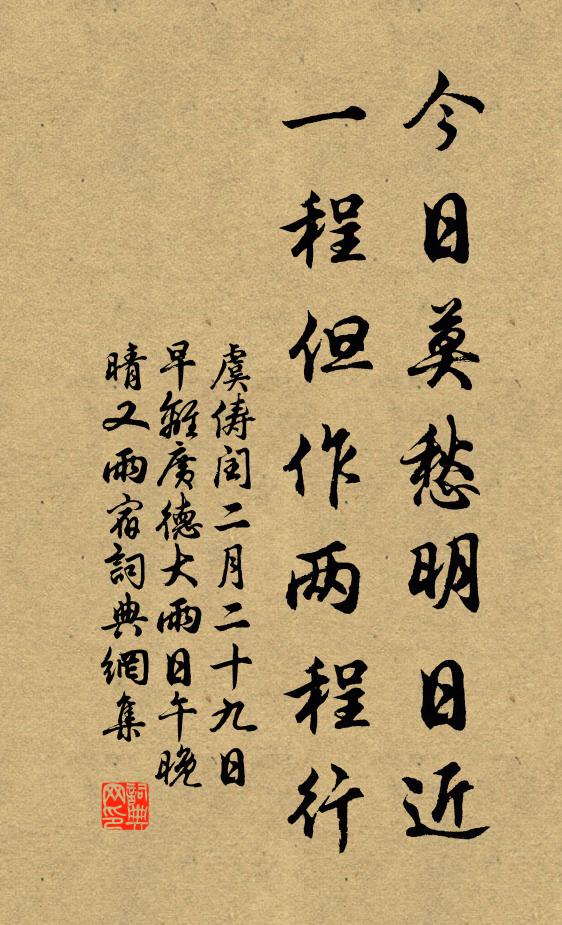 今日莫愁明日近
一程但作两程行
虞俦闰二月二十九日
早離廣德大雨日午晚
晴又雨宿詞典網集
詞典
网印